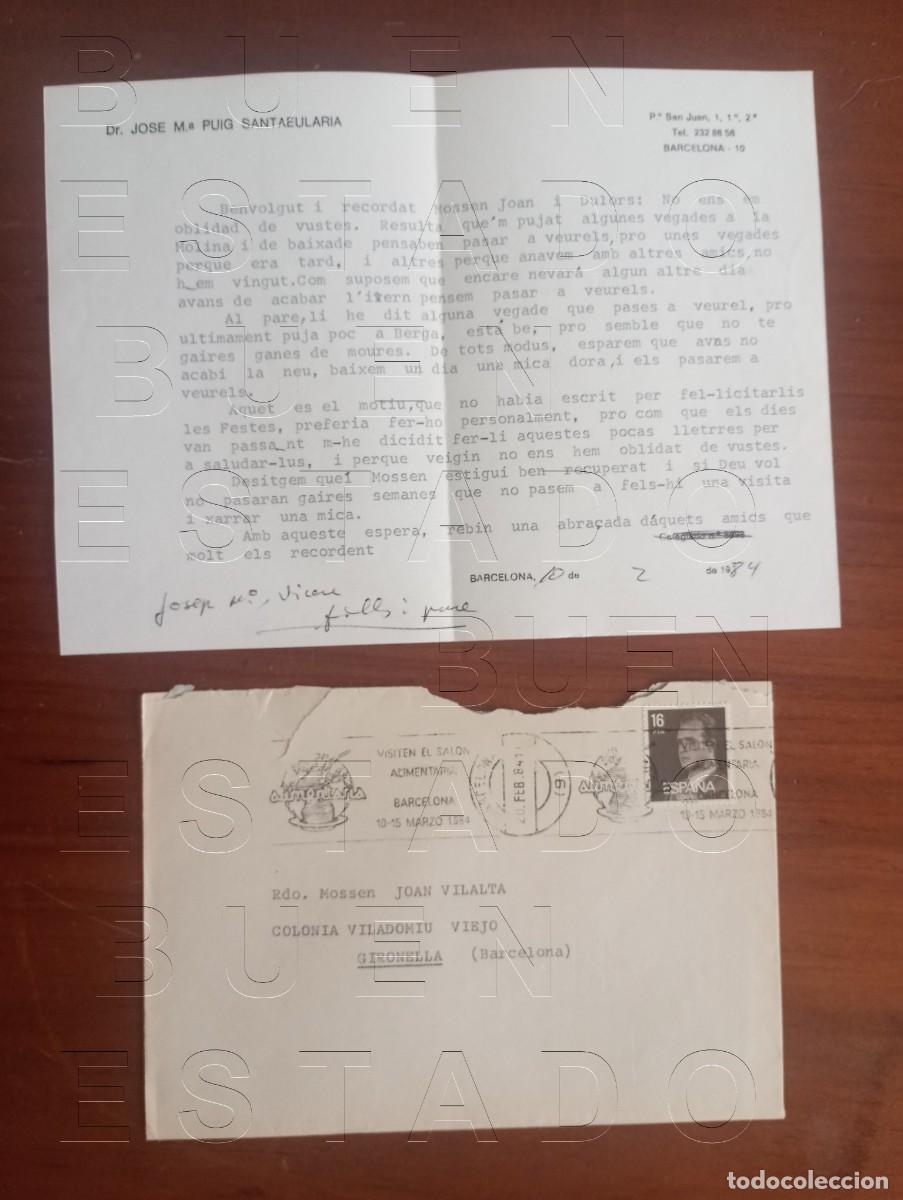 Dr. JOSE M.ª PUIG SANTAEULARIA
P.º San Juan, 1, 1.º, 2.ª
Tel. 232 86 56
BARCELONA - 10
Benvolgut i recordat Mossen Joan i Dulors: No ens em
oblidad de vustes. Resulta que'm pujat algunes vegades a la
Molina i de baixade pensaben pasar a veurels,pro unes vegades
perque era tard, i altres perque anavem amb altres amics,no
h_em vingut.Com suposem que encare nevará algun altre dia
avans de acabar l'ivern pensem pasar a veurels.
Al pare,li he dit alguna vegade que pases a veurel, pro
ultimament puja poc a Berga, está be, pro semble que no te
gaires ganes de moures. De tots modus, esparem que avas no
acabi la neu, baixem un dia una mica dora,i els pasarem a
veurels.
Aquet es el motiu,que no habia escrit per fel-licitarlis
les Festes, preferia fer-ho personalment, pro com que els dies
van passa_nt m-he dicidit fer-li aquestes pocas lletrres per
a saludar-lus, i perque veigin no ens hem oblidat de vustes.
Desitgem que Mossen estigui ben recuperat i si Deu vol
no pasaran gaires semanes que no pasem a fels-hi una visita
i xarrar una mica.
Amb aqueste espera, rebin una abraçada dáquets amics que
molt els recordent
Colegiado n.º
BARCELONA, 10 de 2 de 1984
Josep Mº, 
fills i pare
VISITEN EL SALON
ALIMENTARIA
BARCELONA
10-15 MARZO 1984
alimentaria
20 FEB. 84
(6)
16
PTA
ESPAÑA
VISITEN EL SALON
ALIMENTARIA
BARCELONA
10-15 MARZO 1984
Rdo. Mossen JOAN VILALTA
COLONIA VILADOMIU VIEJO
GIRONELLA (Barcelona)
BUEN
ESTADO
BUEN
ESTADO
BUEN
ESTADO
BUEN
ESTADO
BUEN
ESTADO
todocoleccion